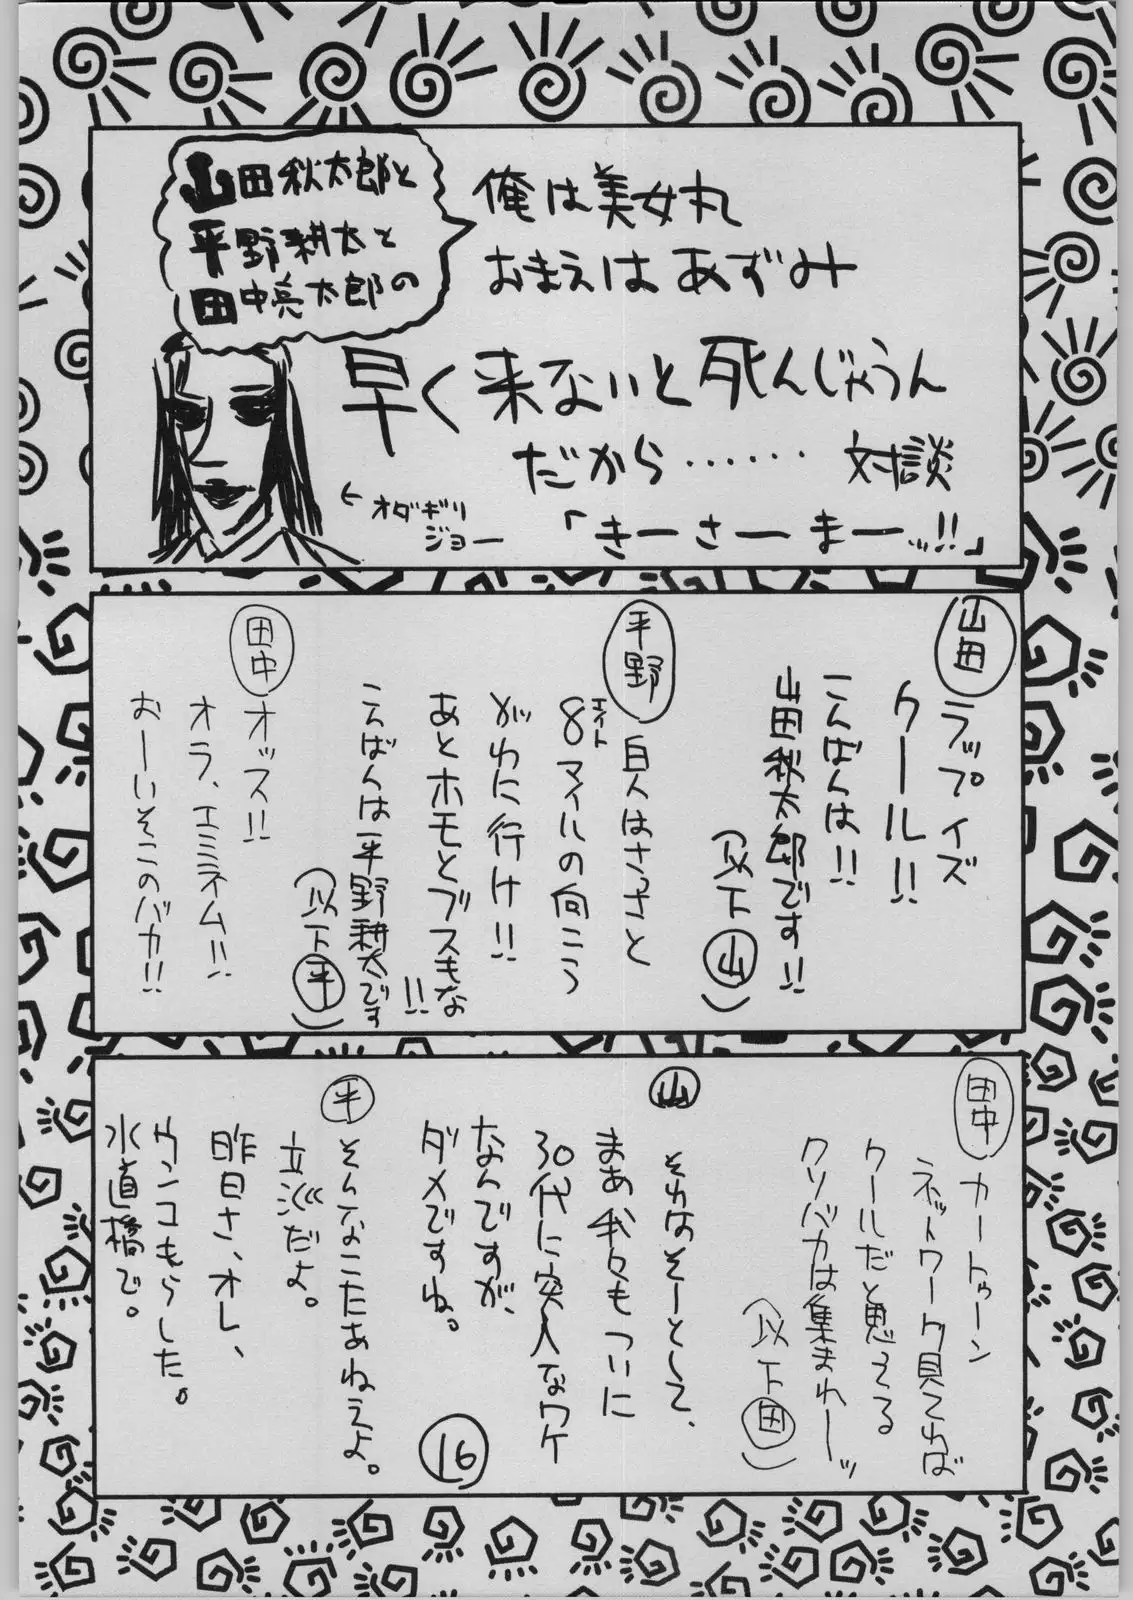 山田秋太郎と
平野耕太と
田中亮太郎の
俺は美女丸
おまえはあずみ
早く来ないと死んじゃうん
だから…… 対談
「きーさーまーッ!!」
オダギリ
ジョー
山田
ラップイズ
クール!!
こんばんは!!
山田秋太郎です!!
(以下山)
平野
白人はさっさと
8マイルの向こう
エイト
がわに行け!!
あとホモとブスもな!!
こんばんは平野耕太です
(以下平)
田中
オッス!!
オラ、エミネム!!
おーいそこのバカ!!
田中
カートゥーン
ネットワーク見てれば
クールだと思えてる
クソバカは集まれーッ
(以下田)
山
それはそーとして、
まあ我々もついに
30代に突入なワケ
なんですが、
ダメですね。
平
そんなこたあねえよ。
立派だよ。
昨日さ、オレ、
ウンコもらした。
水道橋で。
16